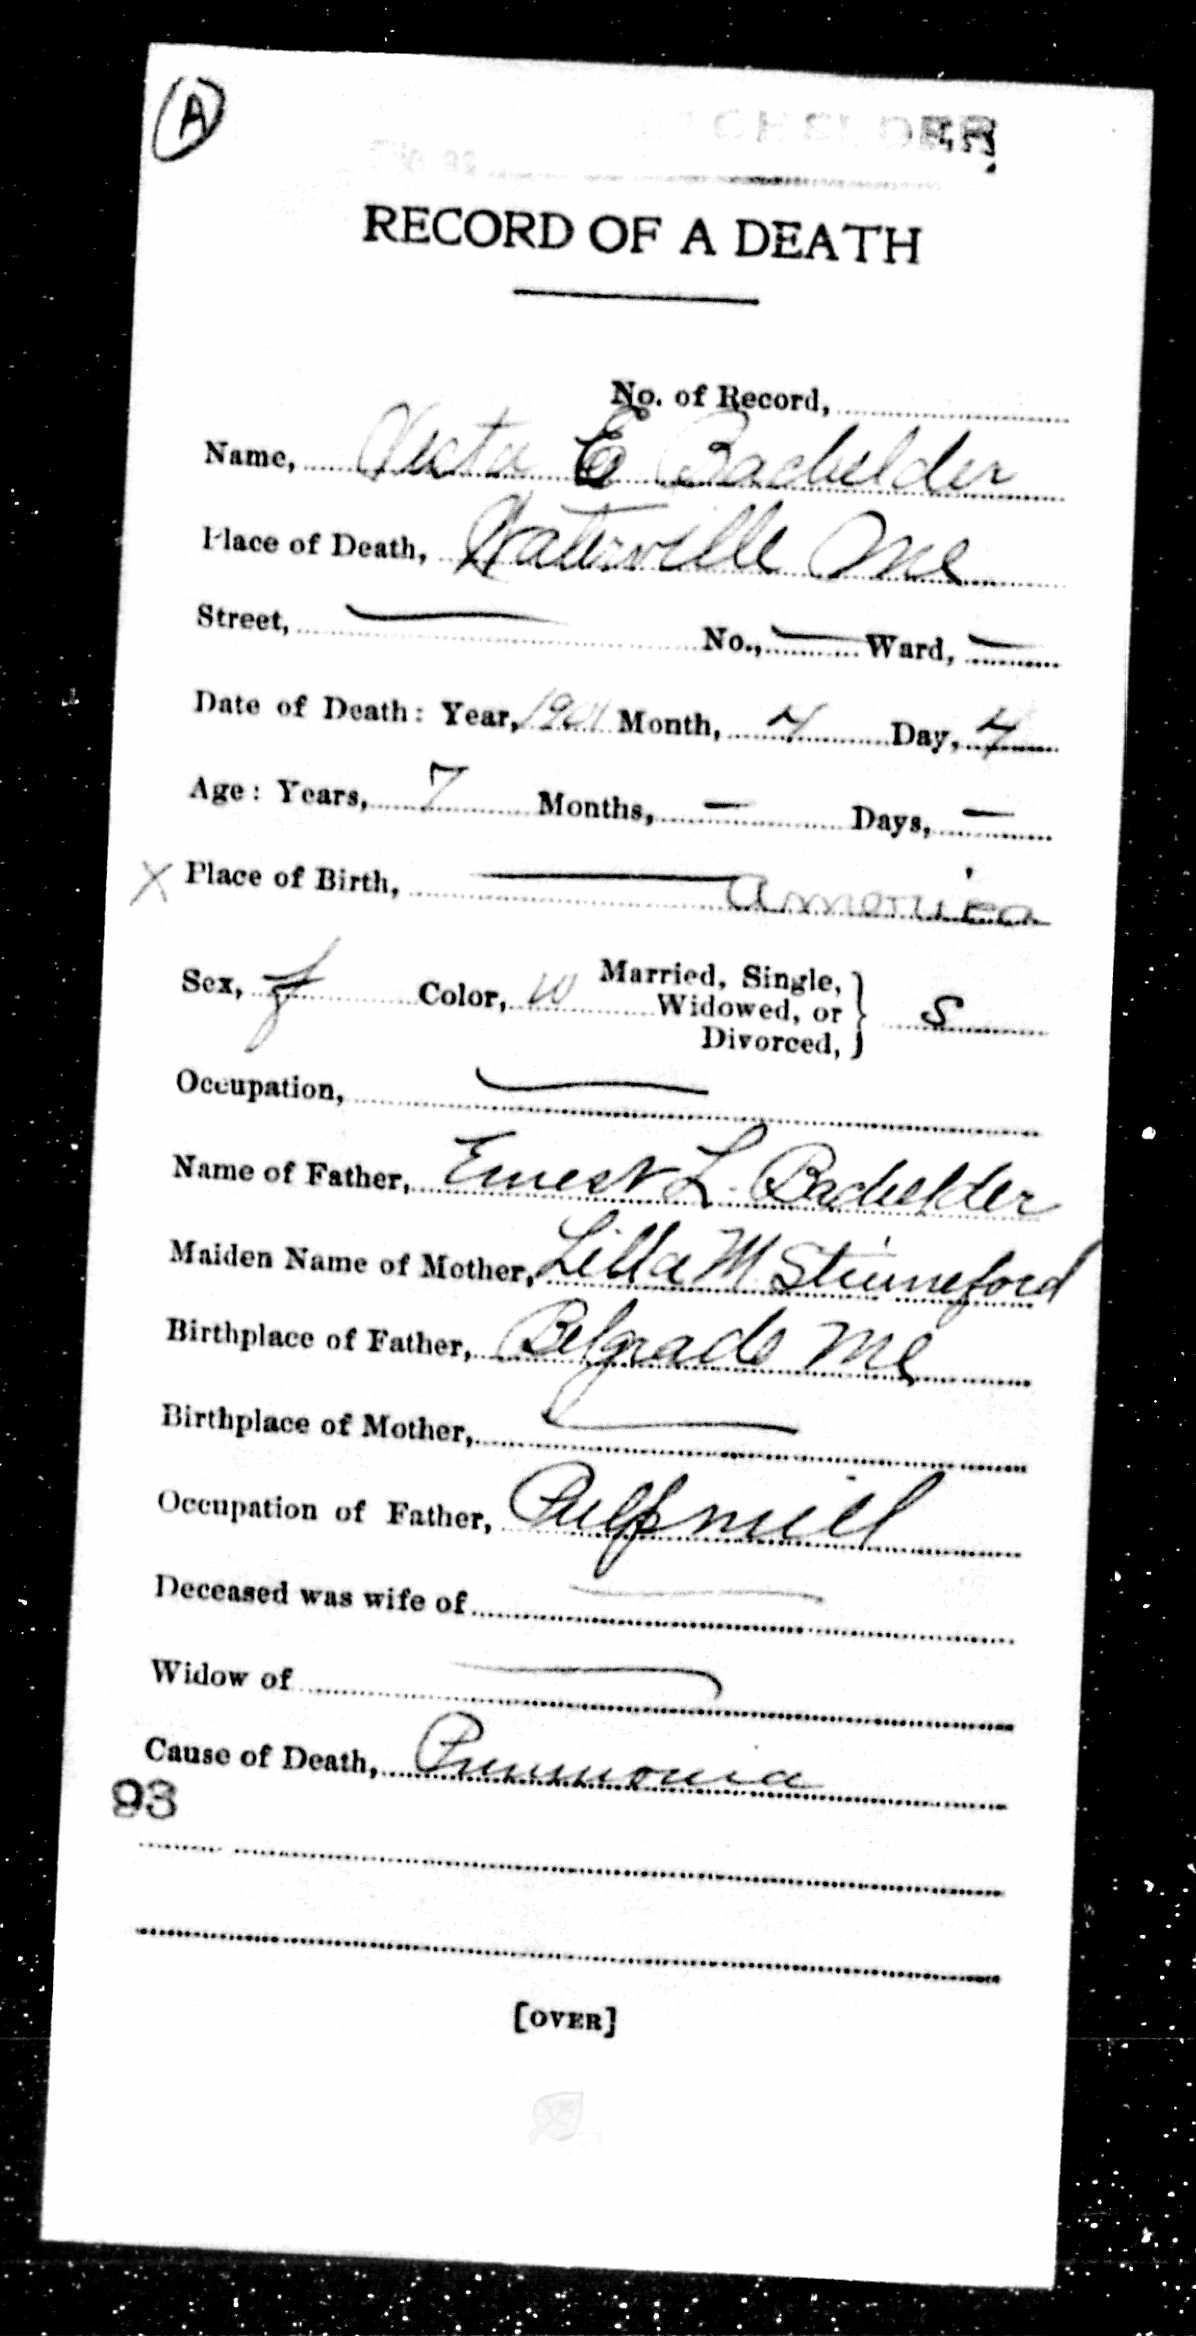 A
RECORD OF A DEATH
No. of Record,
Name, Vesta E Bachelder
Place of Death, Waterville Me
Street, No., Ward,
Date of Death: Year, 1901 Month, 4 Day, 4
Age: Years, 7 Months, — Days, —
X Place of Birth, — america
Sex, f Color, w Married, Single,
Widowed, or
Divorced, } S
Occupation, —
Name of Father, Ernest L. Bachelder
Maiden Name of Mother, Lilla M
Birthplace of Father, Belgrade Me
Birthplace of Mother, —
Occupation of Father, Pulp mill
Deceased was wife of —
Widow of —
Cause of Death, Pneumonia
93
[OVER]